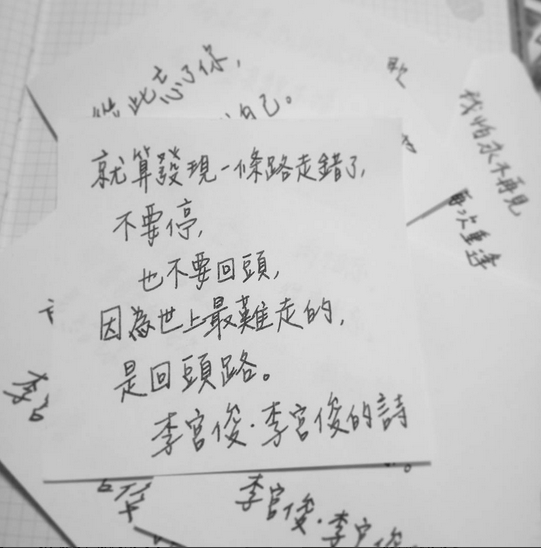 此忘了你，
自己。
就算發現一條路走錯了，
不要停，
也不要回頭，
因為世上最難走的，
是回頭路。
李宮俊·李宮俊的詩
我怕永不再見
再次重逢
李宮俊·李宮俊